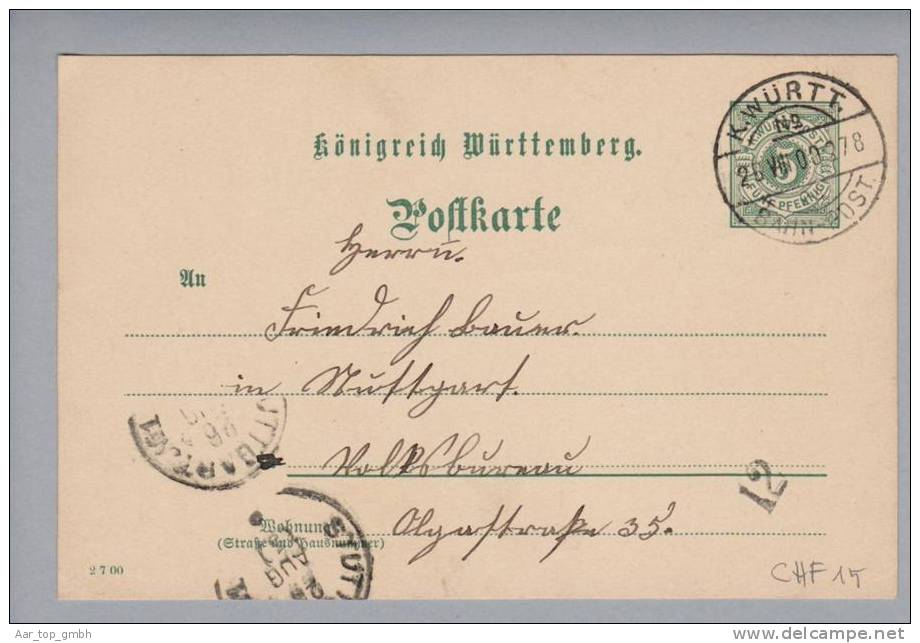 K. WÜRTT.
No
278
BAHN-POST.
FÜNF PFENNIG
5
Königreich Württemberg.
Postkarte
Herrn
An
Friedrich Bauer.
in Stuttgart.
Volksbureau
12
Olgastraße 35.
Wohnung
(Straße und Hausnummer)
STUT
AUG
2 7 00
CHF 15
Aar_top_gmbh
www.delcampe.net